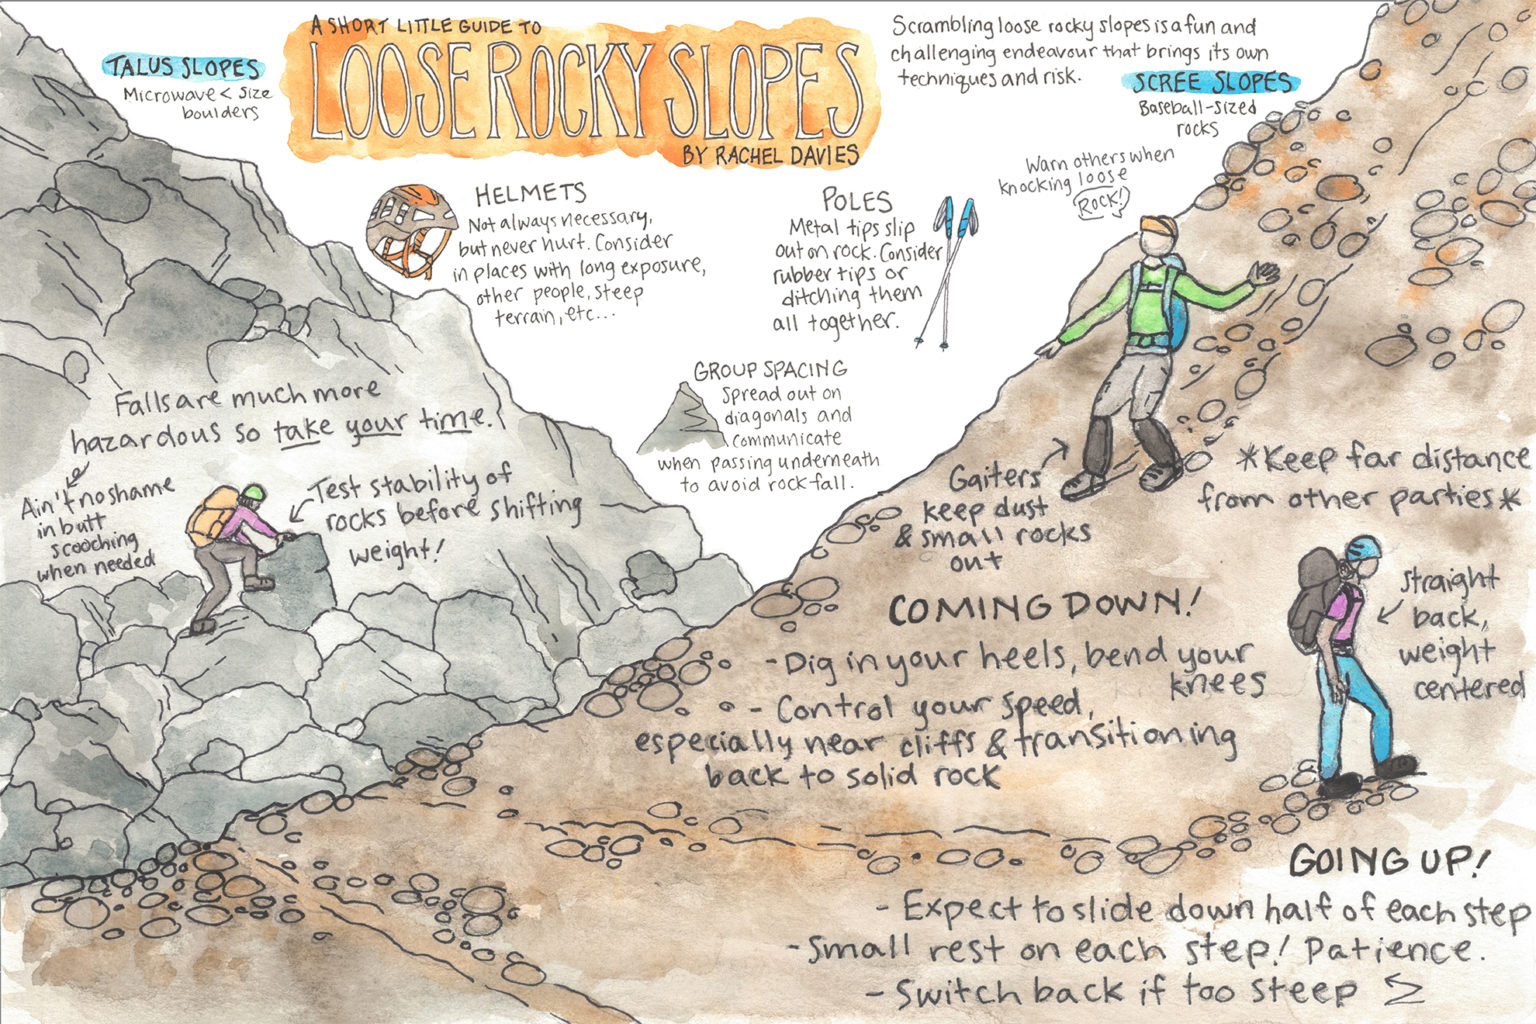 A SHORT LITTLE GUIDE TO
LOOSE ROCKY SLOPES
BY RACHEL DAVIES
Scrambling loose rocky slopes is a fun and
challenging endeavour that brings its own
techniques and risk.
TALUS SLOPES
Microwave < size
boulders
SCREE SLOPES
Baseball-sized
rocks
Warn others when
knocking loose
Rock!
HELMETS
Not always necessary,
but never hurt. Consider
in places with long exposure,
other people, steep
terrain, etc...
POLES
Metal tips slip
out on rock. Consider
rubber tips or
ditching them
all together.
GROUP SPACING
Spread out on
diagonals and
communicate
when passing underneath
to avoid rockfall.
Falls are much more
hazardous so take your time.
Ain't no shame
in butt
scooching
when needed
Test stability of
rocks before shifting
weight!
Gaiters
keep dust
& small rocks
out
*Keep far distance
from other parties*
COMING DOWN!
- Dig in your heels, bend your
knees
- Control your speed,
especially near cliffs & transitioning
back to solid rock
straight
back,
weight
centered
GOING UP!
- Expect to slide down half of each step
- Small rest on each step! Patience.
- Switch back if too steep